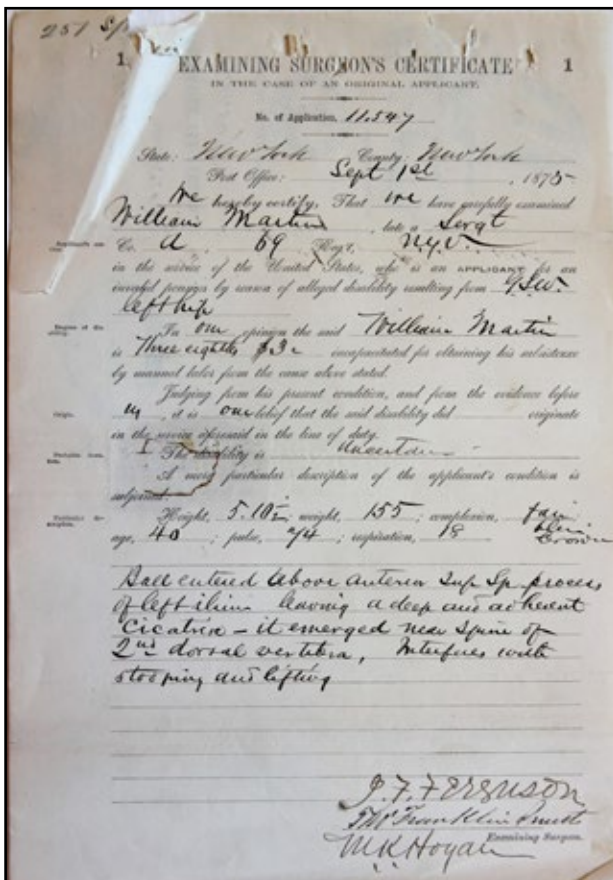 251
1 EXAMINING SURGEON'S CERTIFICATE 1
IN THE CASE OF AN ORIGINAL APPLICANT.
No. of Application, 11.547
State: New York County: New York
Post Office: Sept 1st, 1875
We hereby certify, That we have carefully examined
William Martin, late a Sergt
Co. A 69 Reg't, N.Y.V.
in the service of the United States, who is an APPLICANT for an
invalid pension by reason of alleged disability resulting from G.S.W.
left hip
In our opinion the said William Martin
is three eighths $3 incapacitated for obtaining his subsistence
by manual labor from the cause above stated.
Judging from his present condition, and from the evidence before
us, it is our belief that the said disability did originate
Origin.
in the service aforesaid in the line of duty.
The disability is uncertain
A more particular description of the applicant's condition is
subjoined:
Height, 5.10½; weight, 155; complexion, fair
age, 40; pulse, 74; respiration, 18
Brown
Ball entered above anterior Sup Sp. process
of left ilium leaving a deep and adherent
Cicatrix - it emerged near spine of
2nd dorsal vertebra, Interferes with
stooping and lifting
J. F. Ferguson
Franklin
Examining Surgeon.
M.K. Hogan